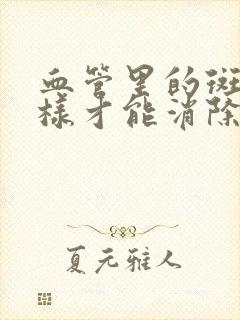 血管里的斑
样才能消除
夏元雅人